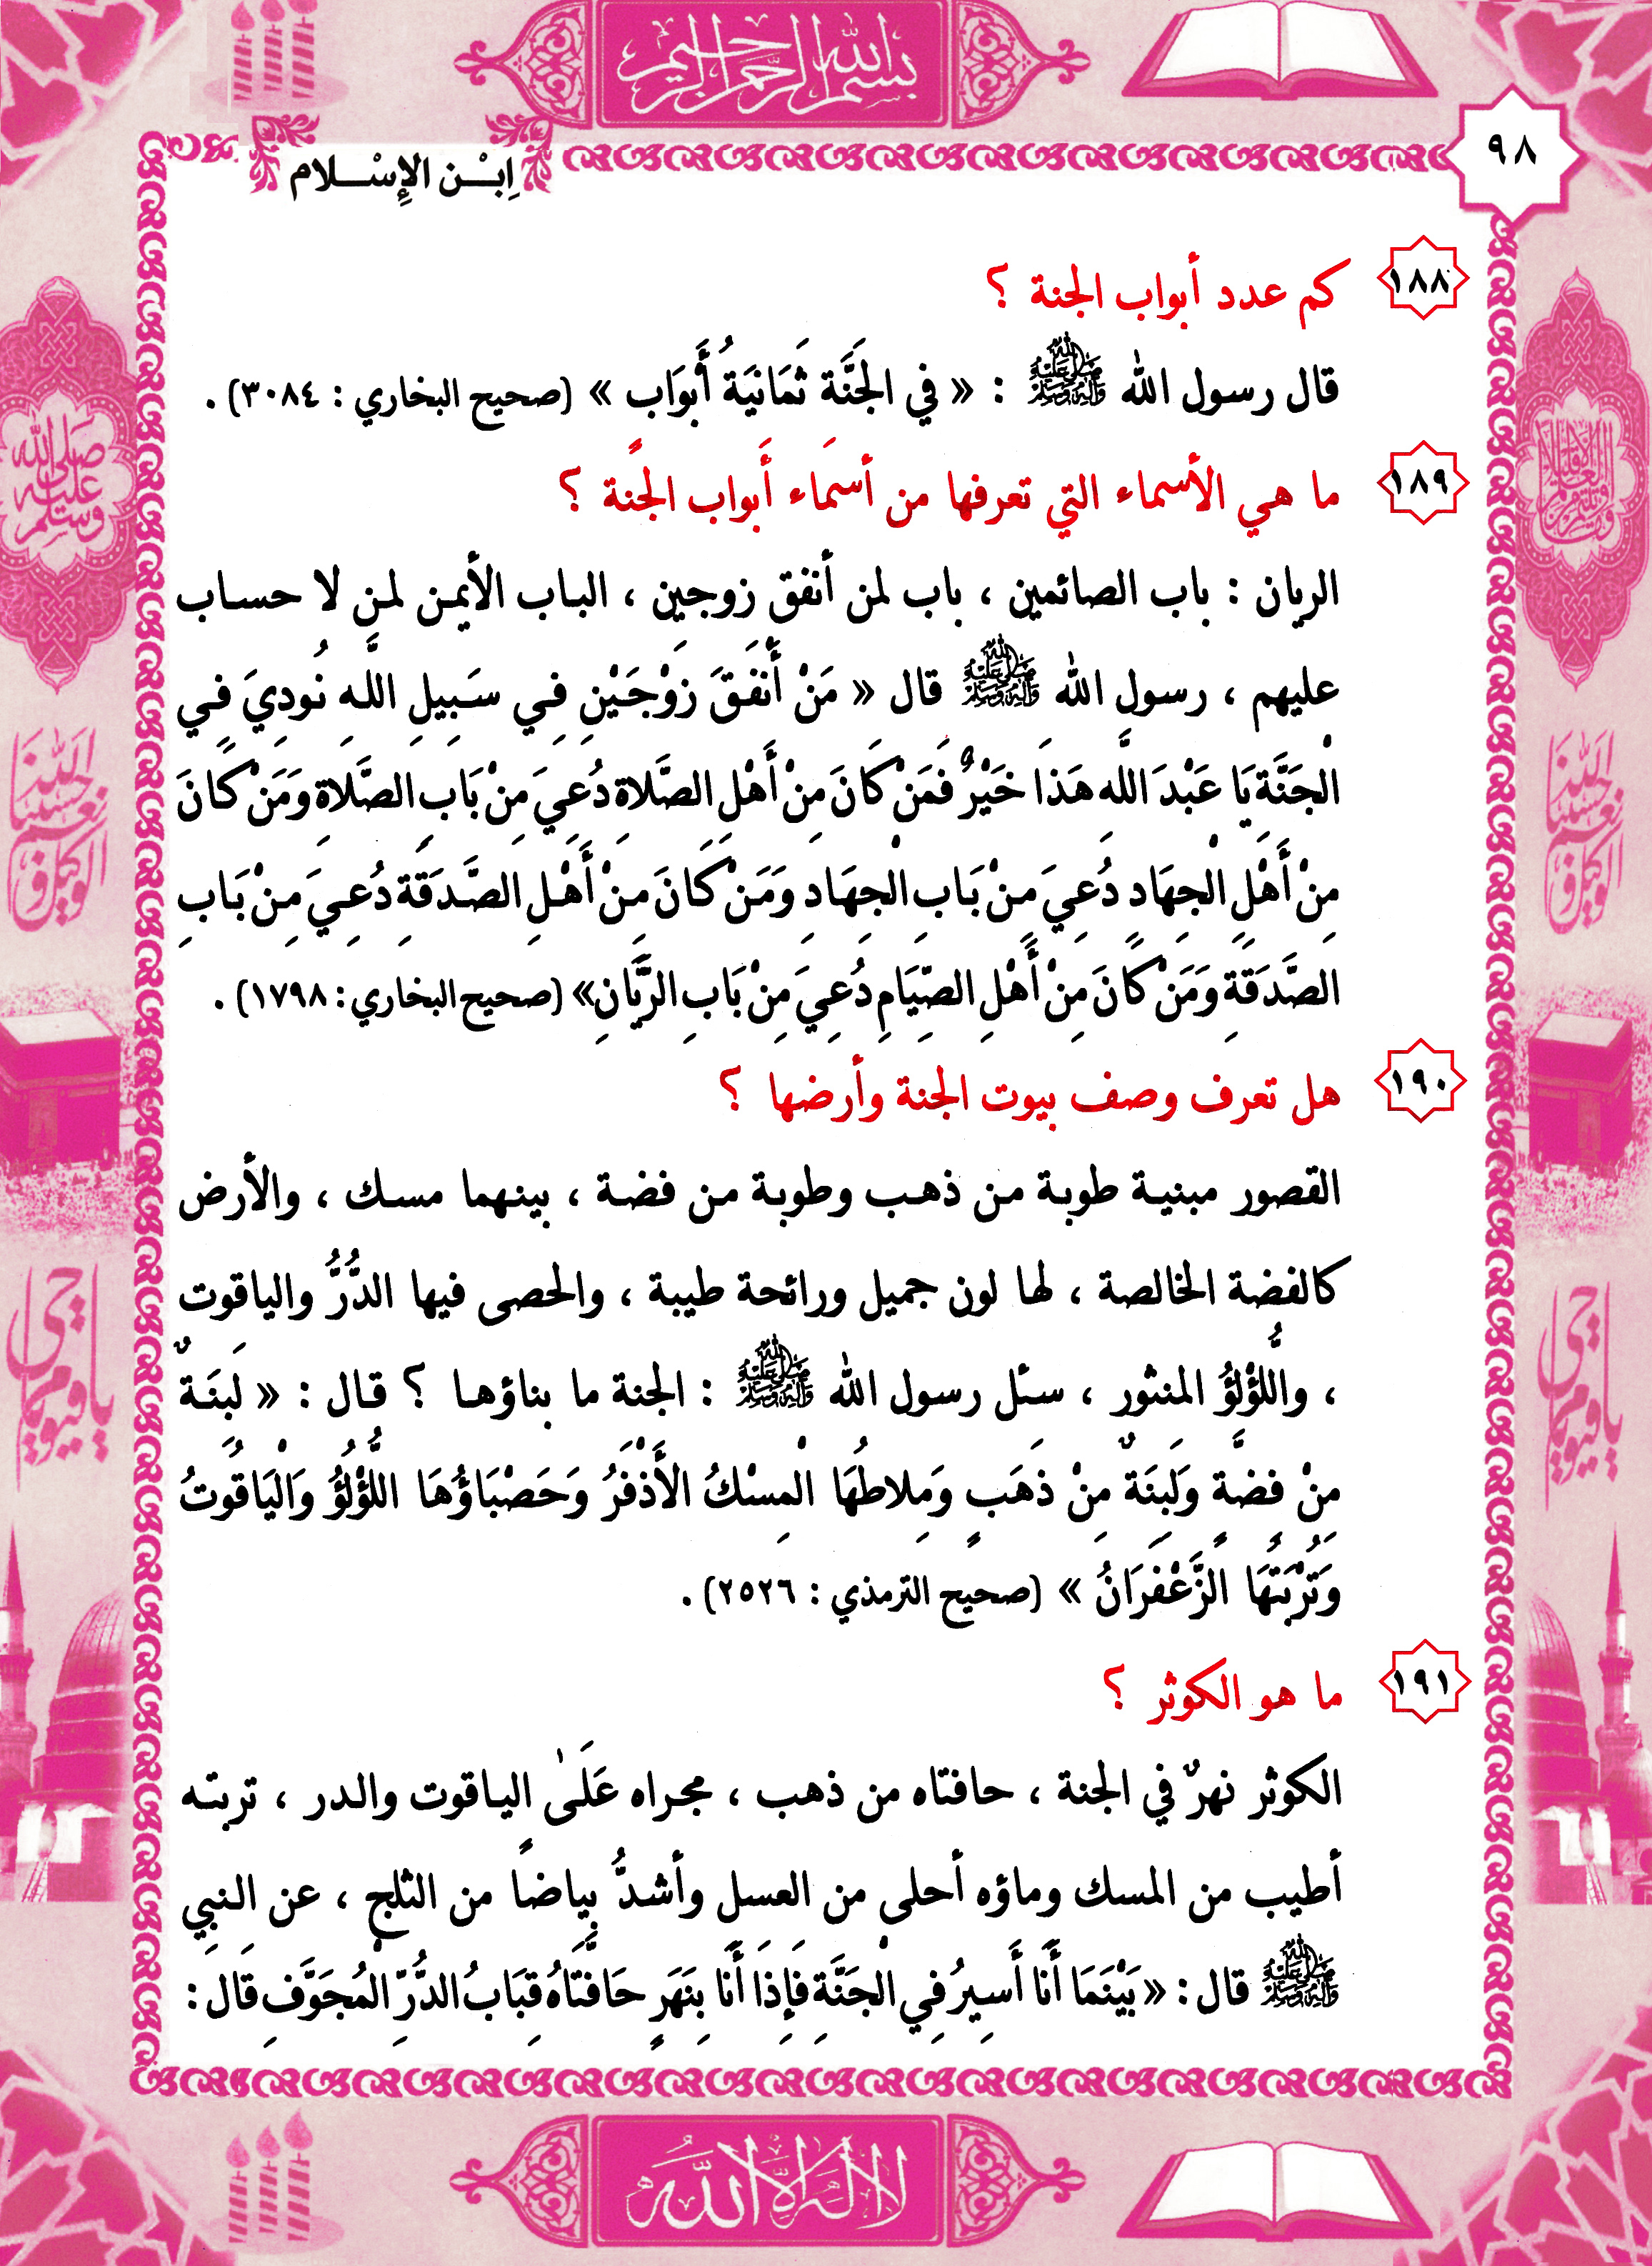 بسم الله الرحمن الرحيم
٩٨
اِبْـــن الإِسْـــلام
١٨٨ كم عدد أبواب الجنة ؟
قال رسول الله ﷺ : « في الجَنَّة ثَمَانيَةُ أَبوَاب » (صحيح البخاري : ٣٠٨٤) .
١٨٩ ما هي الأسماء التي تعرفها من أسمَاء أَبواب الجًنة ؟
الريان : باب الصائمين ، باب لمن أنفق زوجين ، الباب الأيمن لمن لا حساب
عليهم ، رسول الله ﷺ قال « مَنْ أَنْفَقَ زَوْجَيْنِ فِي سَبِيلِ اللَّهِ نُودِيَ فِي
الْجَنَّةِ يَا عَبْدَ اللَّه هَذَا خَيْرٌ فَمَنْ كَانَ مِنْ أَهْلِ الصَّلاةِ دُعِيَ مِنْ بَابِ الصَّلاةِ وَمَنْ كَانَ
مِنْ أَهْلِ الْجِهَادِ دُعِيَ مِنْ بَابِ الْجِهَادِ وَمَنْ كَانَ مِنْ أَهْلِ الصَّدَقَةِ دُعِيَ مِنْ بَابِ
الصَّدَقَةِ وَمَنْ كَانَ مِنْ أَهْلِ الصِّيَامِ دُعِيَ مِنْ بَابِ الرَّيَّانِ» (صحيح البخاري : ١٧٩٨) .
١٩٠ هل تعرف وصف بيوت الجنة وأرضها ؟
القصور مبنية طوبة من ذهب وطوبة من فضة ، بينهما مسك ، والأرض
كالفضة الخالصة ، لها لون جميل ورائحة طيبة ، والحصى فيها الدُّرُّ والياقوت
، واللُّؤلؤُ المنثور ، سئل رسول الله ﷺ : الجنة ما بناؤها ؟ قال : « لَبِنَةٌ
مِنْ فِضَّةٍ وَلَبِنَةٌ مِنْ ذَهَبٍ وَمِلاطُهَا الْمِسْكُ الأَذْفَرُ وَحَصْبَاؤُهَا اللُّؤْلُؤُ وَالْيَاقُوتُ
وَتُرْبَتُهَا الزَّعْفَرَانُ » (صحيح الترمذي : ٢٥٢٦) .
١٩١ ما هو الكوثر ؟
الكوثر نهرٌ في الجنة ، حافتاه من ذهب ، مجراه عَلَىٰ الياقوت والدر ، تربته
أطيب من المسك وماؤه أحلى من العسل وأشدُّ بِياضًا من الثلج ، عن النبِي
ﷺ قال : « بَيْنَمَا أَنَا أَسِيرُ فِي الْجَنَّةِ فَإِذَا أَنَا بِنَهَرٍ حَافَّتَاهُ قِبَابُ الدُّرِّ الْمُجَوَّفِ قَال :
لا إله إلا الله
صلى الله عليه وسلم
حسبنا الله ونعم الوكيل
حسبنا الله ونعم الوكيل
يا حي يا قيوم
يا حي يا قيوم